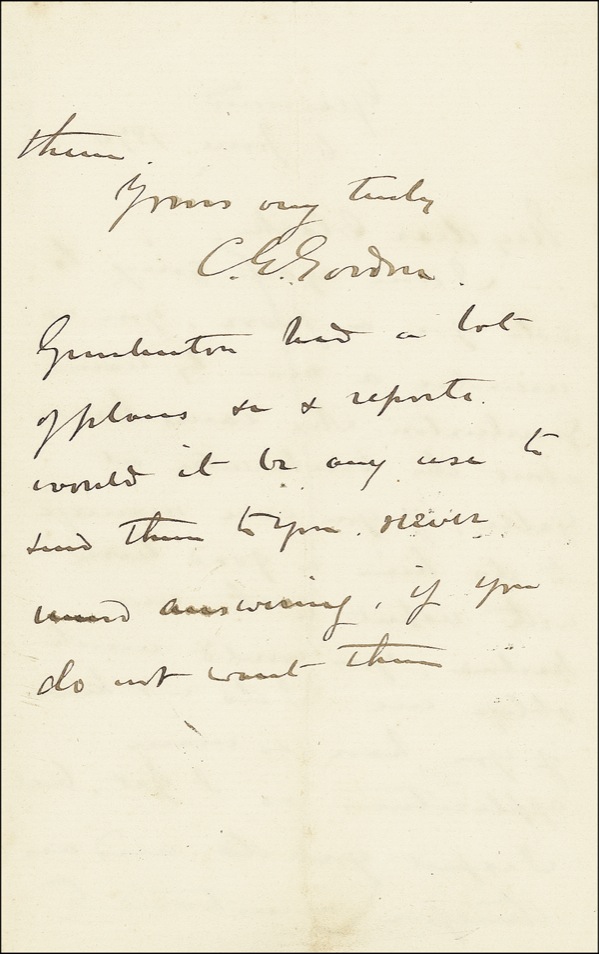 them.
Yours very truly
C. G. Gordon.
had a lot
of plans & reports.
would it be any use to
send them to you. never
mind answering, if you
do not want them